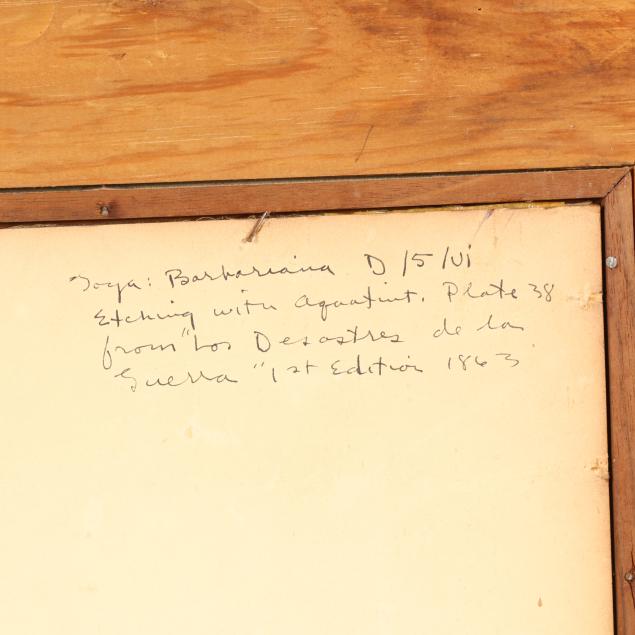 Goya: Barbariana D /5/Ui
Etching with aquatint. Plate 38
from "Los Desastres de la
Guerra" 1st Edition 1863